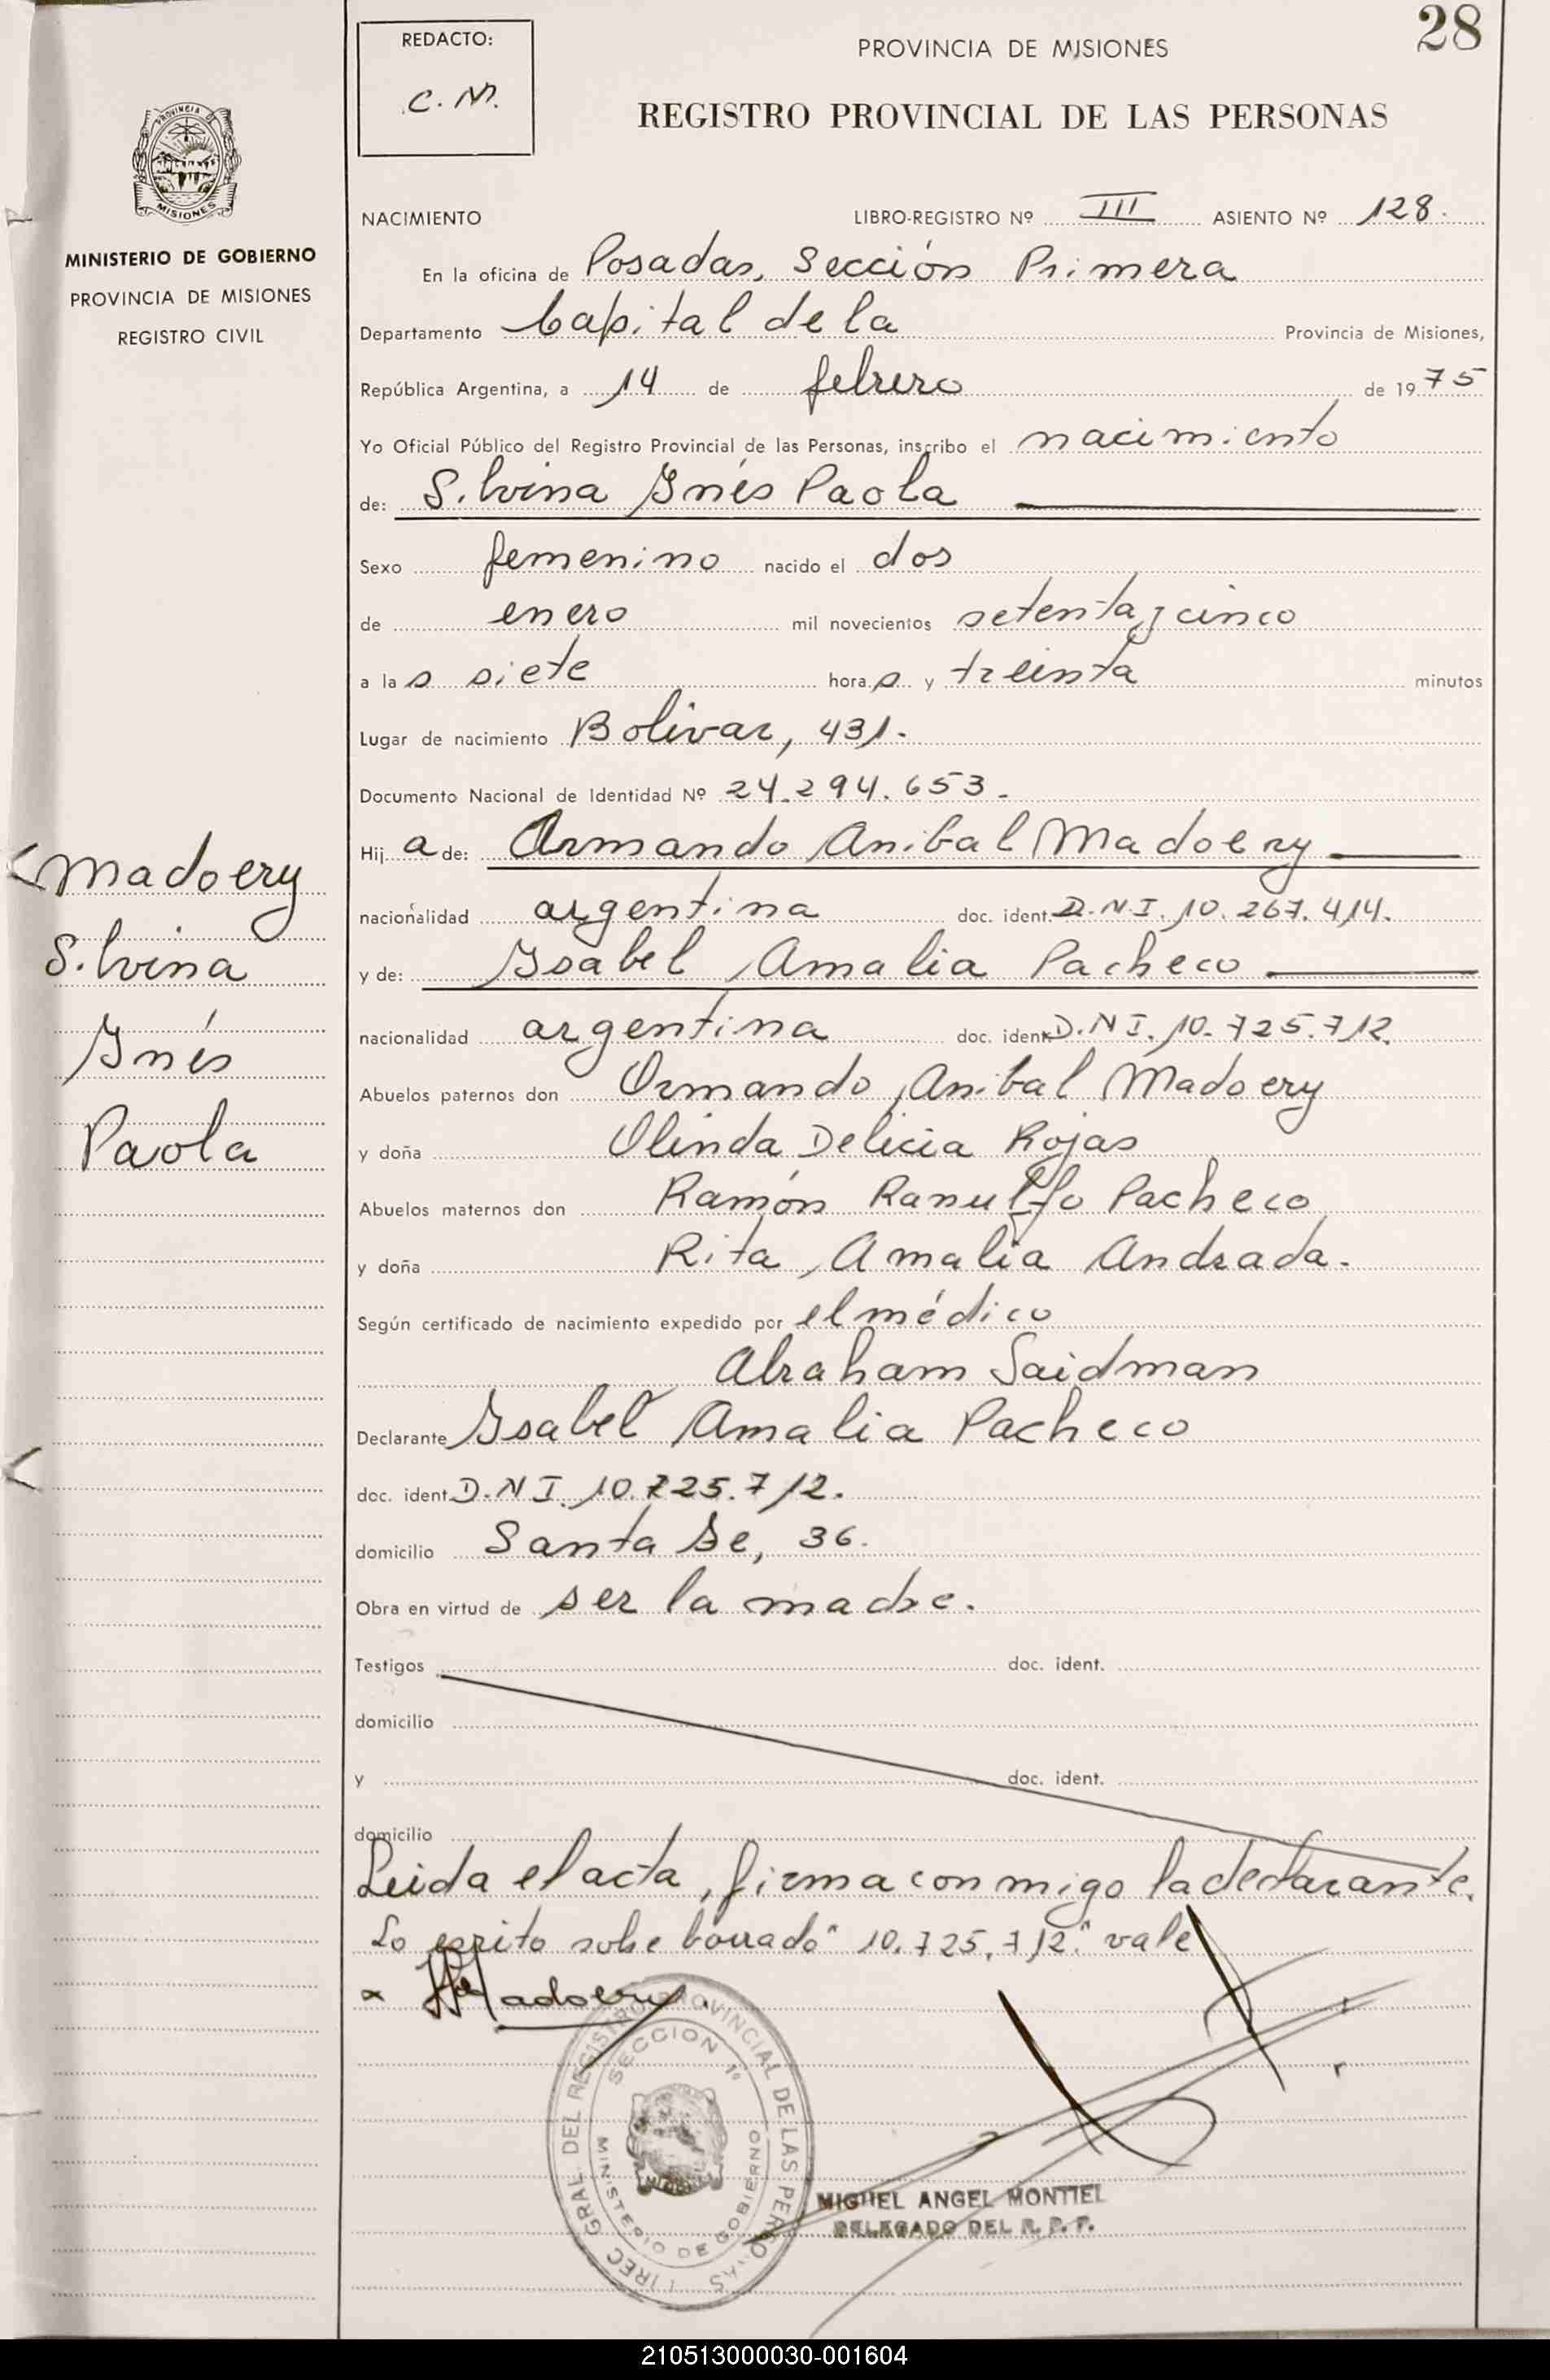 28
REDACTO:
C. M.
PROVINCIA DE MISIONES
REGISTRO PROVINCIAL DE LAS PERSONAS
PROVINCIA DE
MISIONES
MINISTERIO DE GOBIERNO
PROVINCIA DE MISIONES
REGISTRO CIVIL
NACIMIENTO LIBRO-REGISTRO Nº III ASIENTO Nº 128.
En la oficina de Posadas, Sección Primera
Departamento Capital de la Provincia de Misiones,
República Argentina, a 14 de febrero de 1975
Yo Oficial Público del Registro Provincial de las Personas, inscribo el nacimiento
de: Silvina Ynés Paola
Sexo femenino nacido el dos
de enero mil novecientos setenta y cinco
a las siete horas y treinta minutos
Lugar de nacimiento Bolivar, 431.
Documento Nacional de Identidad Nº 24.294.653.
Hija de: Ormando Anibal Madoery
nacionalidad argentina doc. ident. D.N.I. 10.267.414.
y de: Ysabel Amalia Pacheco
nacionalidad argentina doc. ident. D.N.I. 10.725.712.
Abuelos paternos don Ormando Anibal Madoery
y doña Olinda Delicia Rojas
Abuelos maternos don Ramón Ranulfo Pacheco
y doña Rita Amalia Andrada.
Según certificado de nacimiento expedido por el médico
Abraham Saidman
Declarante Ysabel Amalia Pacheco
doc. ident. D.N.I. 10.725.712.
domicilio Santa Fe, 36.
Obra en virtud de ser la madre.
Testigos doc. ident.
domicilio
y doc. ident.
domicilio
Leida el acta, firma conmigo la declarante.
Lo escrito sobre borrado "10.725.712." vale
Madoery
Silvina
Ynés
Paola
x Madoery
DIREC. GRAL. DEL REGISTRO PROVINCIAL DE LAS PERSONAS
SECCION 1º
MINISTERIO DE GOBIERNO
MISIONES
MIGUEL ANGEL MONTIEL
DELEGADO DEL R. P. P.
210513000030-001604